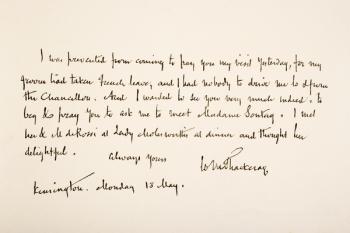 I was prevented from coming to pay you my visit Yesterday, for my
groom had taken french leave; and I had nobody to drive me to & from
the Chancellor. And I wanted to see you very much indeed: to
beg & pray You to ask me to meet Madame Sontag. I met
her & M deRossi at Lady Molesworths at dinner and thought her
delightful.
Always Yours
WMThackeray
Kensington. Monday 13 May.